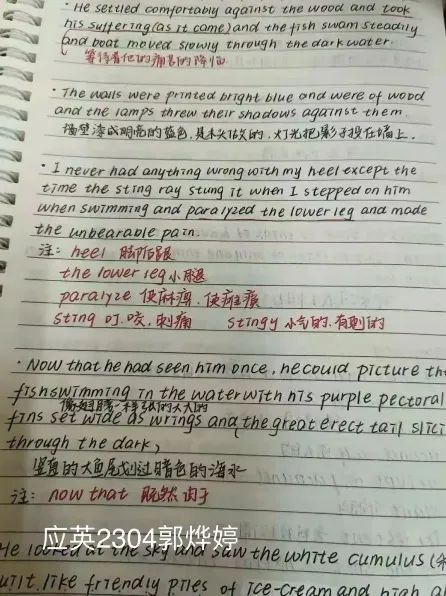 · He settled comfortably against the wood and took
his suffering (as it came) and the fish swam steadily
and boat moved slowly through the dark water.
等待着他的痛苦的降临
· The walls were printed bright blue and were of wood
and the lamps threw their shadows against them.
墙壁漆成明亮的蓝色,是木头做的,灯光把影子投在墙上.
· I never had anything wrong with my heel except the
time the sting ray stung it when I stepped on him
when swimming and paralyzed the lower leg and made
the unbearable pain.
注: heel 脚后跟
the lower leg 小腿
paralyze 使麻痹,使瘫痪
sting 叮.咬.刺痛 stingy 小气的.有刺的
· Now that he had seen him once, he could picture the
fish swimming in the water with his purple pectoral
像翅膀一样张的大大的
fins set wide as wrings and the great erect tail slici
through the dark,
竖直的大鱼尾划过暗色的海水
注: now that 既然 由于
应英2304郭烨婷
He looked at the sky and saw the white cumulus
built like friendly piles of ice-cream and high a